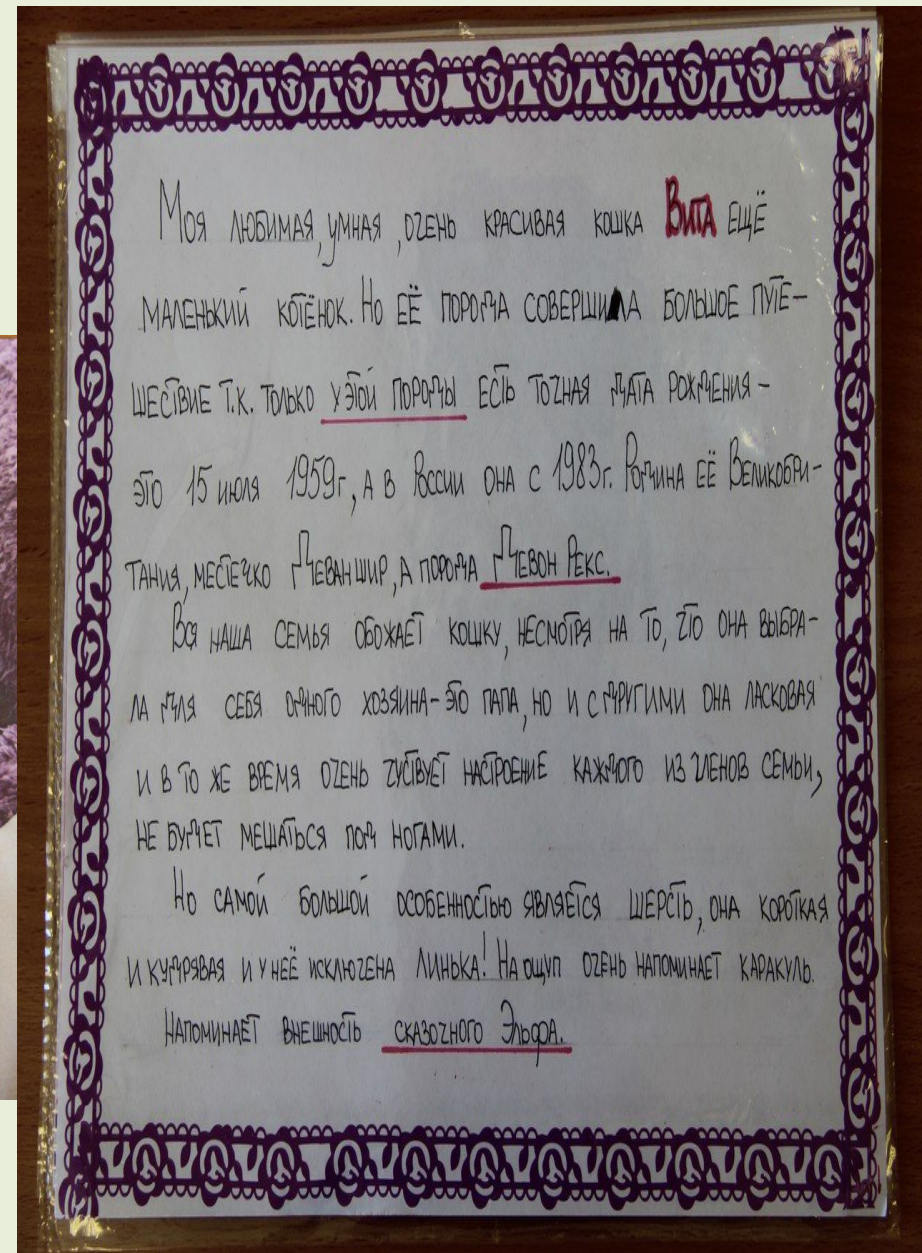 Моя любимая, умная, очень красивая кошка Вита ещё
маленький котёнок. Но её порода совершила большое путе-
шествие т.к. только у этой породы есть точная дата рождения -
это 15 июля 1959г, а в России она с 1983г. Родина её Великобри-
тания, местечко Деваншир, а порода Девон Рекс.
Вся наша семья обожает кошку, несмотря на то, что она выбра-
ла для себя одного хозяина - это папа, но и с другими она ласковая
и в то же время очень чуствует настроение каждого из членов семьи,
не будет мешаться под ногами.
Но самой большой особенностью является шерсть, она короткая
и кудрявая и у неё исключена линька! На ощуп очень напоминает каракуль.
Напоминает внешность сказочного Эльфа.